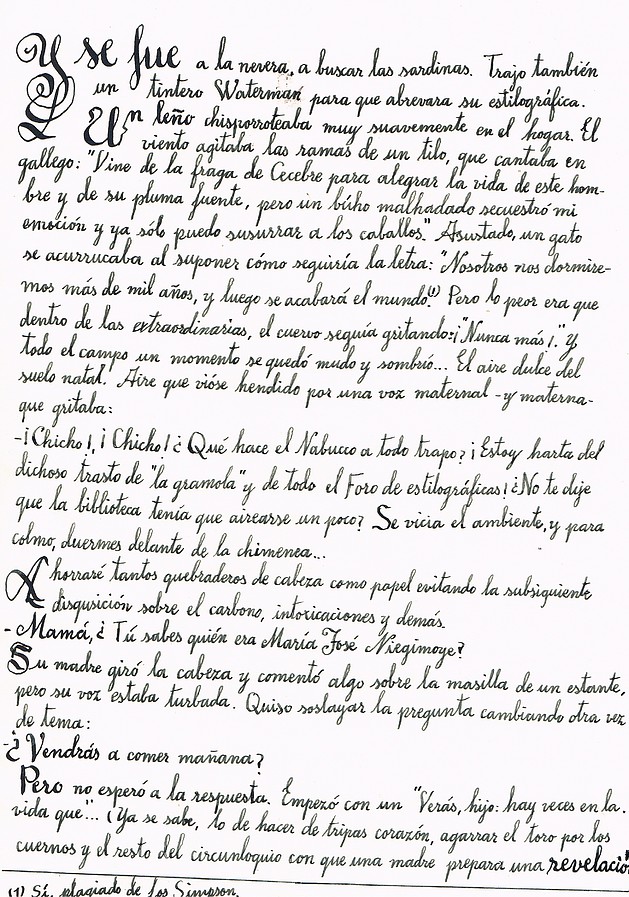 Y se fue a la nevera, a buscar las sardinas. Trajo también
un tintero Waterman para que abrevara su estilográfica.
Un leño chisporroteaba muy suavemente en el hogar. El
viento agitaba las ramas de un tilo, que cantaba en
gallego: "Vine de la fraga de Cecebre para alegrar la vida de este hom-
bre y de su pluma fuente, pero un búho malhadado secuestró mi
emoción y ya sólo puedo susurrar a los caballos". Asustado, un gato
se acurrucaba al suponer cómo seguiría la letra: "Nosotros nos dormire-
mos más de mil años, y luego se acabará el mundo"(1) Pero lo peor era que
dentro de las extraordinarias, el cuervo seguía gritando: ¡"Nunca más¡." y
todo el campo un momento se quedó mudo y sombrío... El aire dulce del
suelo natal. Aire que vióse hendido por una voz maternal -y materna-
que gritaba:
-¡Chicho!, ¡Chicho! ¿Qué hace el Nabucco a todo trapo? ¡Estoy harta del
dichoso trasto de "la gramola" y de todo el Foro de estilográficas! ¿No te dije
que la biblioteca tenía que airearse un poco? Se vicia el ambiente, y para
colmo, duermes delante de la chimenea...
Ahorraré tantos quebraderos de cabeza como papel evitando la subsiguiente
disquisición sobre el carbono, intoxicaciones y demás.
- Mamá, ¿Tú sabes quién era María José Niegimoye?
Su madre giró la cabeza y comentó algo sobre la masilla de un estante,
pero su voz estaba turbada. Quiso soslayar la pregunta cambiando otra vez
de tema:
-¿Vendrás a comer mañana?
Pero no esperó a la respuesta. Empezó con un "Verás, hijo: hay veces en la
vida que"... (Ya se sabe, lo de hacer de tripas corazón, agarrar el toro por los
cuernos y el resto del circunloquio con que una madre prepara una revelació
(1) Sí, plagiado de los Simpson.